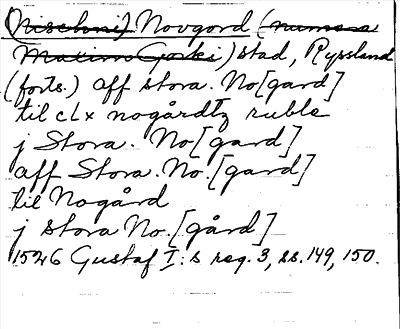 (Nischni) Novgord (numera
Maxim Gorki) stad, Ryssland
(forts.) aff stora. No[gard]
til clx nogårdtz ruble
j Stora. No[gard]
aff Stora. No.[gard]
til Nogård
j stora No.[gård]
1526 Gustaf I:s reg. 3, ss. 149, 150.